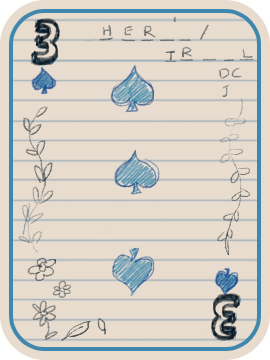 3
H E R _ _ /
I R _ _ L
DC
J
3